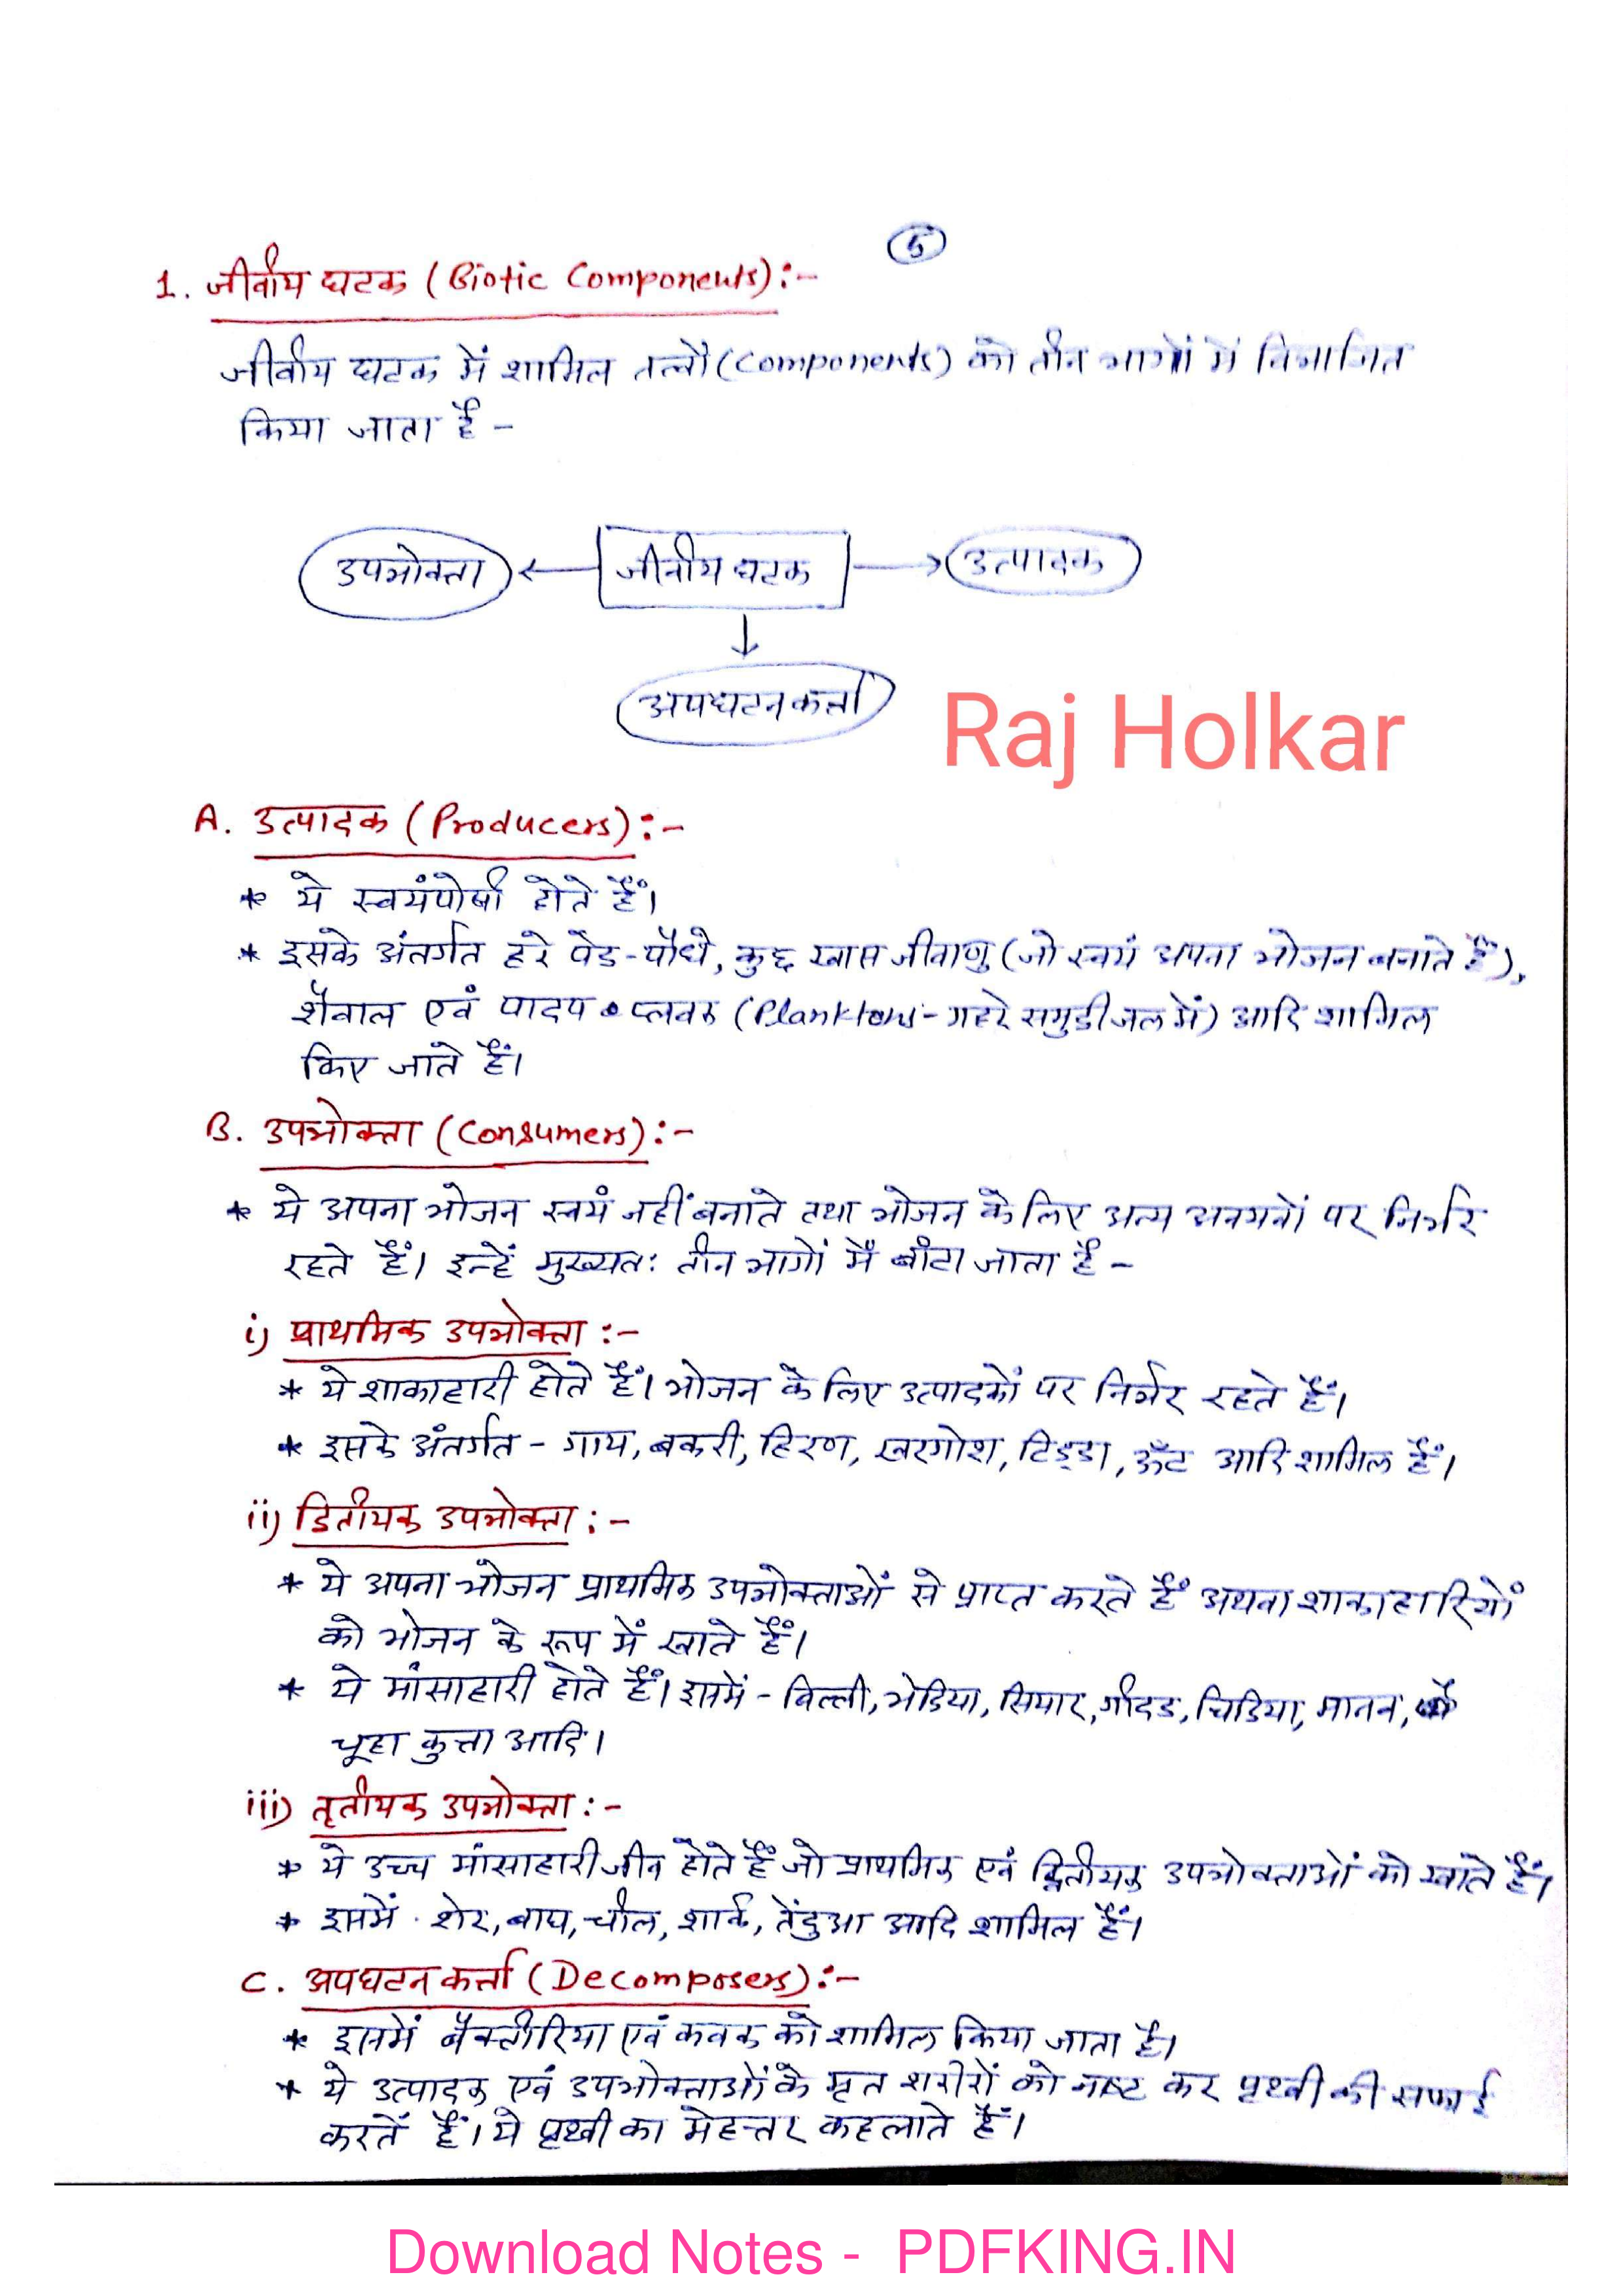 5
1. जीवीय घटक (Biotic Components):-
जीवीय घटक में शामिल तत्वों (Components) को तीन भागों में विभाजित
किया जाता है -
उपभोक्ता ← जीवीय घटक → उत्पादक
↓
अपघटनकर्त्ता
Raj Holkar
A. उत्पादक (Producers):-
* ये स्वयंपोषी होते हैं।
* इसके अंतर्गत हरे पेड-पौधे, कुछ खास जीवाणु (जो स्वयं अपना भोजन बनाते हैं),
शैवाल एवं पादप प्लवक (Planktons- गहरे समुद्री जल में) आदि शामिल
किए जाते हैं।
B. उपभोक्ता (Consumers):-
* ये अपना भोजन स्वयं नहीं बनाते तथा भोजन के लिए अन्य अवयवों पर निर्भर
रहते हैं। इन्हें मुख्यतः तीन भागों में बाँटा जाता है -
i) प्राथमिक उपभोक्ता :-
* ये शाकाहारी होते हैं। भोजन के लिए उत्पादकों पर निर्भर रहते हैं।
* इसके अंतर्गत - गाय, बकरी, हिरण, खरगोश, टिड्डा, ऊँट आदि शामिल हैं।
ii) द्वितीयक उपभोक्ता :-
* ये अपना भोजन प्राथमिक उपभोक्ताओं से प्राप्त करते हैं अथवा शाकाहारियों
को भोजन के रूप में खाते हैं।
* ये मांसाहारी होते हैं। इसमें - बिल्ली, भेडिया, सियार, गीदड, चिडिया, मानव,
चूहा कुत्ता आदि।
iii) तृतीयक उपभोक्ता :-
* ये उच्च मांसाहारी जीव होते हैं जो प्राथमिक एवं द्वितीयक उपभोक्ताओं को खाते हैं।
* इसमें - शेर, बाघ, चील, शार्क, तेंदुआ आदि शामिल हैं।
C. अपघटन कर्त्ता (Decomposers):-
* इसमें बैक्टीरिया एवं कवक को शामिल किया जाता है।
* ये उत्पादक एवं उपभोक्ताओं के मृत शरीरों को नष्ट कर पृथ्वी की सफाई
करतें हैं। ये पृथ्वी का मेहत्तर कहलाते हैं।
Download Notes - PDFKING.IN